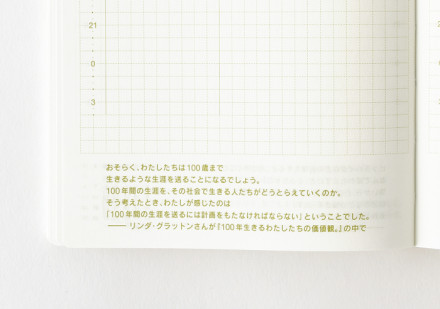 21
0
3
おそらく、わたしたちは100歳まで
生きるような生涯を送ることになるでしょう。
100年間の生涯を、その社会で生きる人たちがどうとらえていくのか。
そう考えたとき、わたしが感じたのは
「100年間の生涯を送るには計画をもたなければならない」ということでした。
—— リンダ・グラットンさんが『100年生きるわたしたちの価値観。』の中で